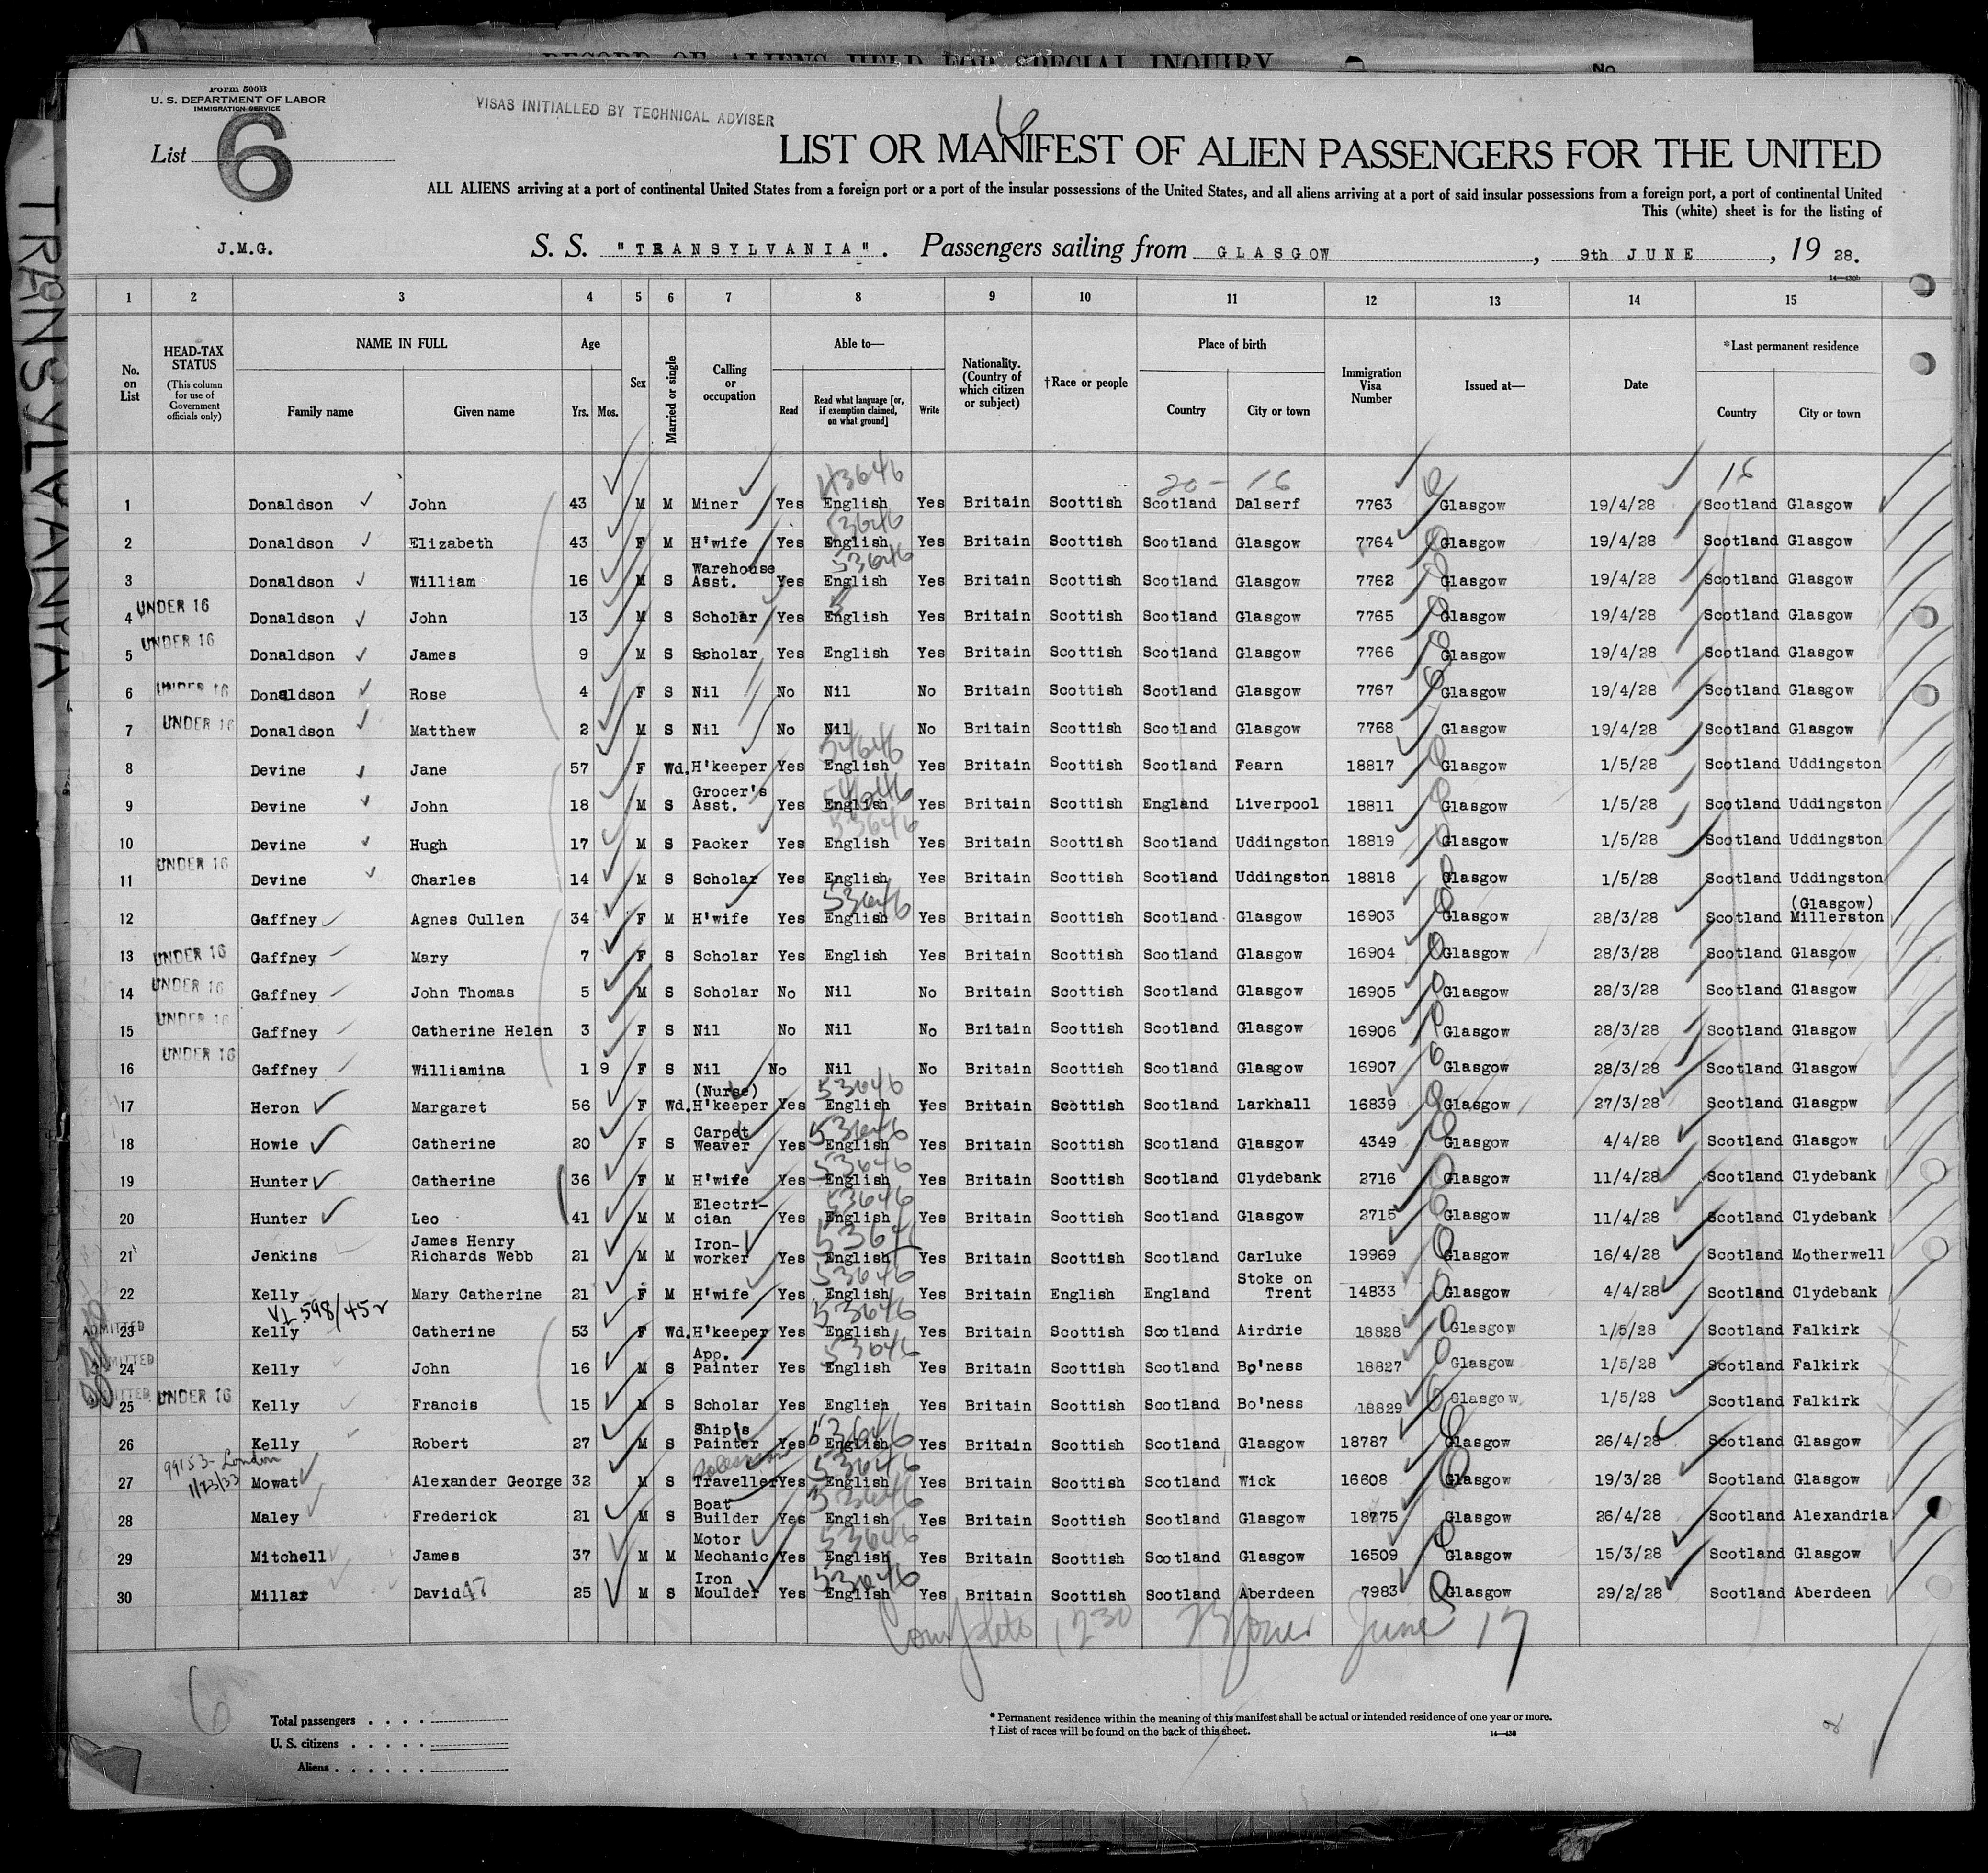 RECORD OF ALIENS HELD FOR SPECIAL INQUIRY
No.
Form 500B
U. S. DEPARTMENT OF LABOR
IMMIGRATION SERVICE
VISAS INITIALLED BY TECHNICAL ADVISER
6
List 6
LIST OR MANIFEST OF ALIEN PASSENGERS FOR THE UNITED
ALL ALIENS arriving at a port of continental United States from a foreign port or a port of the insular possessions of the United States, and all aliens arriving at a port of said insular possessions from a foreign port, a port of continental United
This (white) sheet is for the listing of
TRANSYLVANIA
J.M.G. S. S. "TRANSYLVANIA". Passengers sailing from GLASGOW, 9th JUNE, 19 28.
1 2 3 4 5 6 7 8 9 10 11 12 13 14 15
No. on List
HEAD-TAX STATUS (This column for use of Government officials only)
NAME IN FULL Family name Given name
Age Yrs. Mos.
Sex
Married or single
Calling or occupation
Able to— Read Read what language [or, if exemption claimed, on what ground] Write
Nationality. (Country of which citizen or subject)
†Race or people
Place of birth Country City or town
Immigration Visa Number
Issued at—
Date
*Last permanent residence Country City or town
1 Donaldson John 43 M M Miner Yes English Yes Britain Scottish Scotland Dalserf 7763 Glasgow 19/4/28 Scotland Glasgow
2 Donaldson Elizabeth 43 F M H'wife Yes English Yes Britain Scottish Scotland Glasgow 7764 Glasgow 19/4/28 Scotland Glasgow
3 Donaldson William 16 M S Warehouse Asst. Yes English Yes Britain Scottish Scotland Glasgow 7762 Glasgow 19/4/28 Scotland Glasgow
4 UNDER 16 Donaldson John 13 M S Scholar Yes English Yes Britain Scottish Scotland Glasgow 7765 Glasgow 19/4/28 Scotland Glasgow
5 UNDER 16 Donaldson James 9 M S Scholar Yes English Yes Britain Scottish Scotland Glasgow 7766 Glasgow 19/4/28 Scotland Glasgow
6 UNDER 16 Donaldson Rose 4 F S Nil No Nil No Britain Scottish Scotland Glasgow 7767 Glasgow 19/4/28 Scotland Glasgow
7 UNDER 16 Donaldson Matthew 2 M S Nil No Nil No Britain Scottish Scotland Glasgow 7768 Glasgow 19/4/28 Scotland Glasgow
8 Devine Jane 57 F Wd. H'keeper Yes English Yes Britain Scottish Scotland Fearn 18817 Glasgow 1/5/28 Scotland Uddingston
9 Devine John 18 M S Grocer's Asst. Yes English Yes Britain Scottish England Liverpool 18811 Glasgow 1/5/28 Scotland Uddingston
10 Devine Hugh 17 M S Packer Yes English Yes Britain Scottish Scotland Uddingston 18819 Glasgow 1/5/28 Scotland Uddingston
11 UNDER 16 Devine Charles 14 M S Scholar Yes English Yes Britain Scottish Scotland Uddingston 18818 Glasgow 1/5/28 Scotland Uddingston
12 Gaffney Agnes Cullen 34 F M H'wife Yes English Yes Britain Scottish Scotland Glasgow 16903 Glasgow 28/3/28 Scotland (Glasgow) Millerston
13 UNDER 16 Gaffney Mary 7 F S Scholar Yes English Yes Britain Scottish Scotland Glasgow 16904 Glasgow 28/3/28 Scotland Glasgow
14 UNDER 16 Gaffney John Thomas 5 M S Scholar No Nil No Britain Scottish Scotland Glasgow 16905 Glasgow 28/3/28 Scotland Glasgow
15 UNDER 16 Gaffney Catherine Helen 3 F S Nil No Nil No Britain Scottish Scotland Glasgow 16906 Glasgow 28/3/28 Scotland Glasgow
16 UNDER 16 Gaffney Williamina 1 9 F S Nil No Nil No Britain Scottish Scotland Glasgow 16907 Glasgow 28/3/28 Scotland Glasgow
17 Heron Margaret 56 F Wd. (Nurse) H'keeper Yes English Yes Britain Scottish Scotland Larkhall 16839 Glasgow 27/3/28 Scotland Glasgpw
18 Howie Catherine 20 F S Carpet Weaver Yes English Yes Britain Scottish Scotland Glasgow 4349 Glasgow 4/4/28 Scotland Glasgow
19 Hunter Catherine 36 F M H'wife Yes English Yes Britain Scottish Scotland Clydebank 2716 Glasgow 11/4/28 Scotland Clydebank
20 Hunter Leo 41 M M Electri-cian Yes English Yes Britain Scottish Scotland Glasgow 2715 Glasgow 11/4/28 Scotland Clydebank
21 Jenkins James Henry Richards Webb 21 M M Iron-worker Yes English Yes Britain Scottish Scotland Carluke 19969 Glasgow 16/4/28 Scotland Motherwell
22 Kelly Mary Catherine 21 F M H'wife Yes English Yes Britain English England Stoke on Trent 14833 Glasgow 4/4/28 Scotland Clydebank
VL 598/452
23 ADMITTED Kelly Catherine 53 F Wd. H'keeper Yes English Yes Britain Scottish Scotland Airdrie 18828 Glasgow 1/5/28 Scotland Falkirk
24 ADMITTED Kelly John 16 M S App. Painter Yes English Yes Britain Scottish Scotland Bo'ness 18827 Glasgow 1/5/28 Scotland Falkirk
25 ADMITTED UNDER 16 Kelly Francis 15 M S Scholar Yes English Yes Britain Scottish Scotland Bo'ness 18829 Glasgow 1/5/28 Scotland Falkirk
26 Kelly Robert 27 M S Ship's Painter Yes English Yes Britain Scottish Scotland Glasgow 18787 Glasgow 26/4/28 Scotland Glasgow
99153- London 1/23/33
27 Mowat Alexander George 32 M S Traveller Yes English Yes Britain Scottish Scotland Wick 16608 Glasgow 19/3/28 Scotland Glasgow
28 Maley Frederick 21 M S Boat Builder Yes English Yes Britain Scottish Scotland Glasgow 18775 Glasgow 26/4/28 Scotland Alexandria
29 Mitchell James 37 M M Motor Mechanic Yes English Yes Britain Scottish Scotland Glasgow 16509 Glasgow 15/3/28 Scotland Glasgow
30 Millar David 25 M S Iron Moulder Yes English Yes Britain Scottish Scotland Aberdeen 7983 Glasgow 29/2/28 Scotland Aberdeen
Complete 1230 June 17
6
Total passengers . . . .
U. S. citizens . . . . .
Aliens . . . . . .
* Permanent residence within the meaning of this manifest shall be actual or intended residence of one year or more.
† List of races will be found on the back of this sheet.
14—430